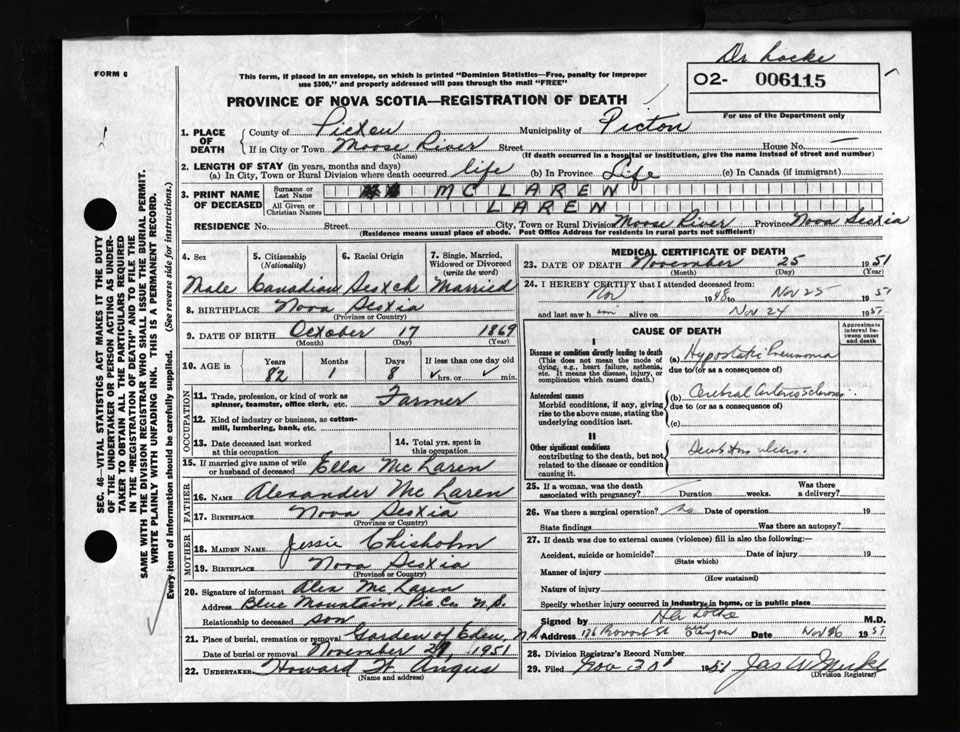 Dr. Locke
FORM 6
This form, if placed in an envelope, on which is printed "Dominion Statistics—Free, penalty for improper
use $300," and properly addressed will pass through the mail "FREE"
O2- 006115
For use of the Department only
PROVINCE OF NOVA SCOTIA—REGISTRATION OF DEATH
1. PLACE OF DEATH
County of Pictou Municipality of Pictou
If in City or Town Moose River Street House No. —
(Name) (If death occurred in a hospital or institution, give the name instead of street and number)
2. LENGTH OF STAY (in years, months and days)
(a) In City, Town or Rural Division where death occurred life (b) In Province Life (c) In Canada (if immigrant)
3. PRINT NAME OF DECEASED
Surname or Last Name MCLAREN
All Given or Christian Names LAREN
RESIDENCE No. Street City, Town or Rural Division Moose River Province Nova Scotia
(Residence means usual place of abode. Post Office Address for residents in rural parts not sufficient)
SEC. 46—VITAL STATISTICS ACT MAKES IT THE DUTY
OF THE UNDERTAKER OR PERSON ACTING AS UNDER-
TAKER TO OBTAIN ALL THE PARTICULARS REQUIRED
IN THE "REGISTRATION OF DEATH" AND TO FILE THE
SAME WITH THE DIVISION REGISTRAR WHO SHALL ISSUE THE BURIAL PERMIT.
WRITE PLAINLY WITH UNFADING INK. THIS IS A PERMANENT RECORD.
Every item of information should be carefully supplied. (See reverse side for instructions.)
4. Sex
Male
5. Citizenship
(Nationality)
Canadian
6. Racial Origin
Scotch
7. Single, Married,
Widowed or Divorced
(write the word)
Married
8. BIRTHPLACE Nova Scotia
(Province or Country)
9. DATE OF BIRTH October 17 1869
(Month) (Day) (Year)
10. AGE in
Years Months Days If less than one day old
82 1 8 hrs. or min.
OCCUPATION
11. Trade, profession, or kind of work as
spinner, teamster, office clerk, etc. Farmer
12. Kind of industry or business, as cotton-
mill, lumbering, bank, etc.
13. Date deceased last worked
at this occupation
14. Total yrs. spent in
this occupation
15. If married give name of wife
or husband of deceased Ella McLaren
FATHER
16. NAME Alexander McLaren
17. BIRTHPLACE Nova Scotia
(Province or Country)
MOTHER
18. MAIDEN NAME Jessie Chisholm
19. BIRTHPLACE Nova Scotia
(Province or Country)
20. Signature of informant Alex McLaren
Address Blue Mountain, Pic Co. N.S.
Relationship to deceased son
21. Place of burial, cremation or removal Garden of Eden, N.S.
Date of burial or removal November 1951
22. UNDERTAKER Howard W. Angus
(Name and address)
MEDICAL CERTIFICATE OF DEATH
23. DATE OF DEATH November 25 1951
(Month) (Day) (Year)
24. I HEREBY CERTIFY that I attended deceased from:
Nov 1948 to Nov 25 1951
and last saw h im alive on Nov 24 1951
CAUSE OF DEATH
Approximate
interval be-
tween onset
and death
I
Disease or condition directly leading to death
(This does not mean the mode of
dying, e.g., heart failure, asthenia,
etc. It means the disease, injury, or
complication which caused death.)
(a) Hypostatic Pneumonia
due to (or as a consequence of)
Antecedent causes
Morbid conditions, if any, giving
rise to the above cause, stating the
underlying condition last.
(b) Cerebral Arteriosclerosis
due to (or as a consequence of)
(c)
II
Other significant conditions
contributing to the death, but not
related to the disease or condition
causing it.
Decubitus ulcers.
25. If a woman, was the death
associated with pregnancy? Duration weeks. Was there
a delivery?
26. Was there a surgical operation? No Date of operation 19
State findings Was there an autopsy?
27. If death was due to external causes (violence) fill in also the following:—
Accident, suicide or homicide? Date of injury 19
(State which)
Manner of injury
(How sustained)
Nature of injury
Specify whether injury occurred in industry, in home, or in public place
Signed by H A Locke M.D.
Address 176 Provost St New Glasgow Date Nov 26 1951
28. Division Registrar's Record Number
29. Filed Nov 30 1951 Jas
(Division Registrar)